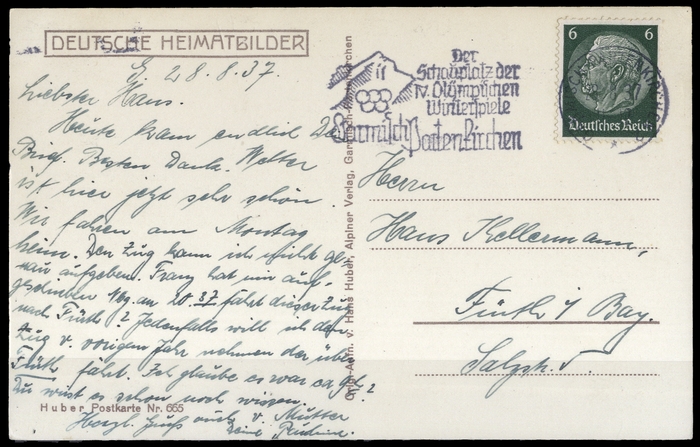 DEUTSCHE HEIMATBILDER
G. 28.8.37.
Liebster Hans.
Heute kam endlich Dein
Brief. Besten Dank. Wetter
ist hier jetzt sehr schön.
Wir fahren am Montag
heim. Den Zug kann ich nicht ge-
nau aufgeben. Franz hat mir auf-
geschrieben Abg. an 20.37 fährt dieser Zug
nach Fürth? Jedenfalls will ich den
Zug v. vorigen Jahr nehmen der über
Fürth fährt. Ich glaube es war ca
Du wirst es schon noch wissen.
Herzl. Gruß auch v. Mutter
Deine
Huber Postkarte Nr. 665
Orig.-Aufn. v. Hans Huber, Alpiner Verlag, Garmisch-Partenkirchen
Der
Schauplatz der
IV. Olympischen
Winterspiele
Garmisch-Partenkirchen
6 6
Deutsches Reich
Herrn
Hans Kellermann,
Fürth i/Bay.
Salzstr. 5.